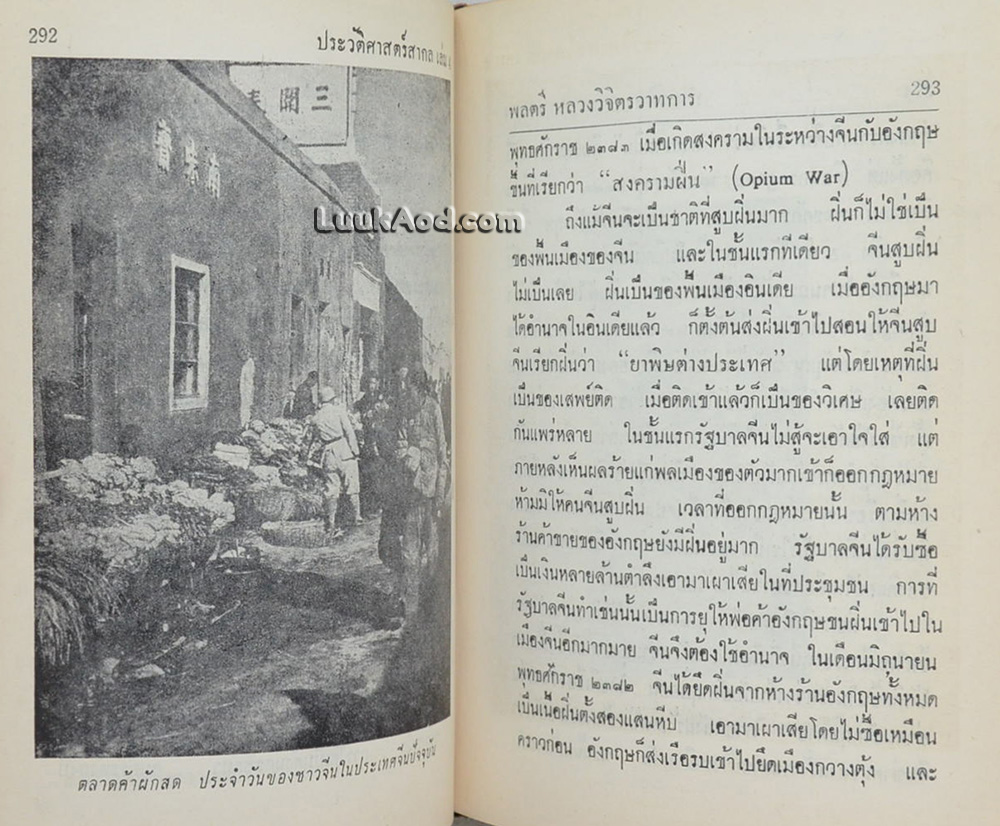 292
ประวัติศาสตร์สากล เล่ม
三開
LuukAod.com
ตลาดค้าผักสด ประจำวันของชาวจีนในประเทศจีนปัจจุบัน
พลตรี หลวงวิจิตรวาทการ
293
พุทธศักราช ๒๓๘๓ เมื่อเกิดสงครามในระหว่างจีนกับอังกฤษ
ขึ้นที่เรียกว่า “สงครามฝิ่น” (Opium War)
ถึงแม้จีนจะเป็นชาติที่สูบฝิ่นมาก ฝิ่นก็ไม่ใช่เป็น
ของพื้นเมืองของจีน และในชั้นแรกทีเดียว จีนสูบฝิ่น
ไม่เป็นเลย ฝิ่นเป็นของพื้นเมืองอินเดีย เมื่ออังกฤษมา
ได้อำนาจในอินเดียแล้ว ก็ตั้งต้นส่งฝิ่นเข้าไปสอนให้จีนสูบ
จีนเรียกฝิ่นว่า “ยาพิษต่างประเทศ” แต่โดยเหตุที่ฝิ่น
เป็นของเสพย์ติด เมื่อติดเข้าแล้วก็เป็นของวิเศษ เลยติด
กันแพร่หลาย ในชั้นแรกรัฐบาลจีนไม่สู้จะเอาใจใส่ แต่
ภายหลังเห็นผลร้ายแก่พลเมืองของตัวมากเข้าก็ออกกฎหมาย
ห้ามมิให้คนจีนสูบฝิ่น เวลาที่ออกกฎหมายนั้น ตามห้าง
ร้านค้าขายของอังกฤษยังมีฝิ่นอยู่มาก รัฐบาลจีนได้รับซื้อ
เป็นเงินหลายล้านตำลึงเอามาเผาเสียในที่ประชุมชน การที่
รัฐบาลจีนทำเช่นนั้นเป็นการยุให้พ่อค้าอังกฤษขนฝิ่นเข้าไปใน
เมืองจีนอีกมากมาย จีนจึงต้องใช้อำนาจ ในเดือนมิถุนายน
พุทธศักราช ๒๓๘๒ จีนได้ยึดฝิ่นจากห้างร้านอังกฤษทั้งหมด
เป็นเนื้อฝิ่นตั้งสองแสนหีบ เอามาเผาเสียโดยไม่ซื้อเหมือน
คราวก่อน อังกฤษก็ส่งเรือรบเข้าไปยึดเมืองกวางตุ้ง และ